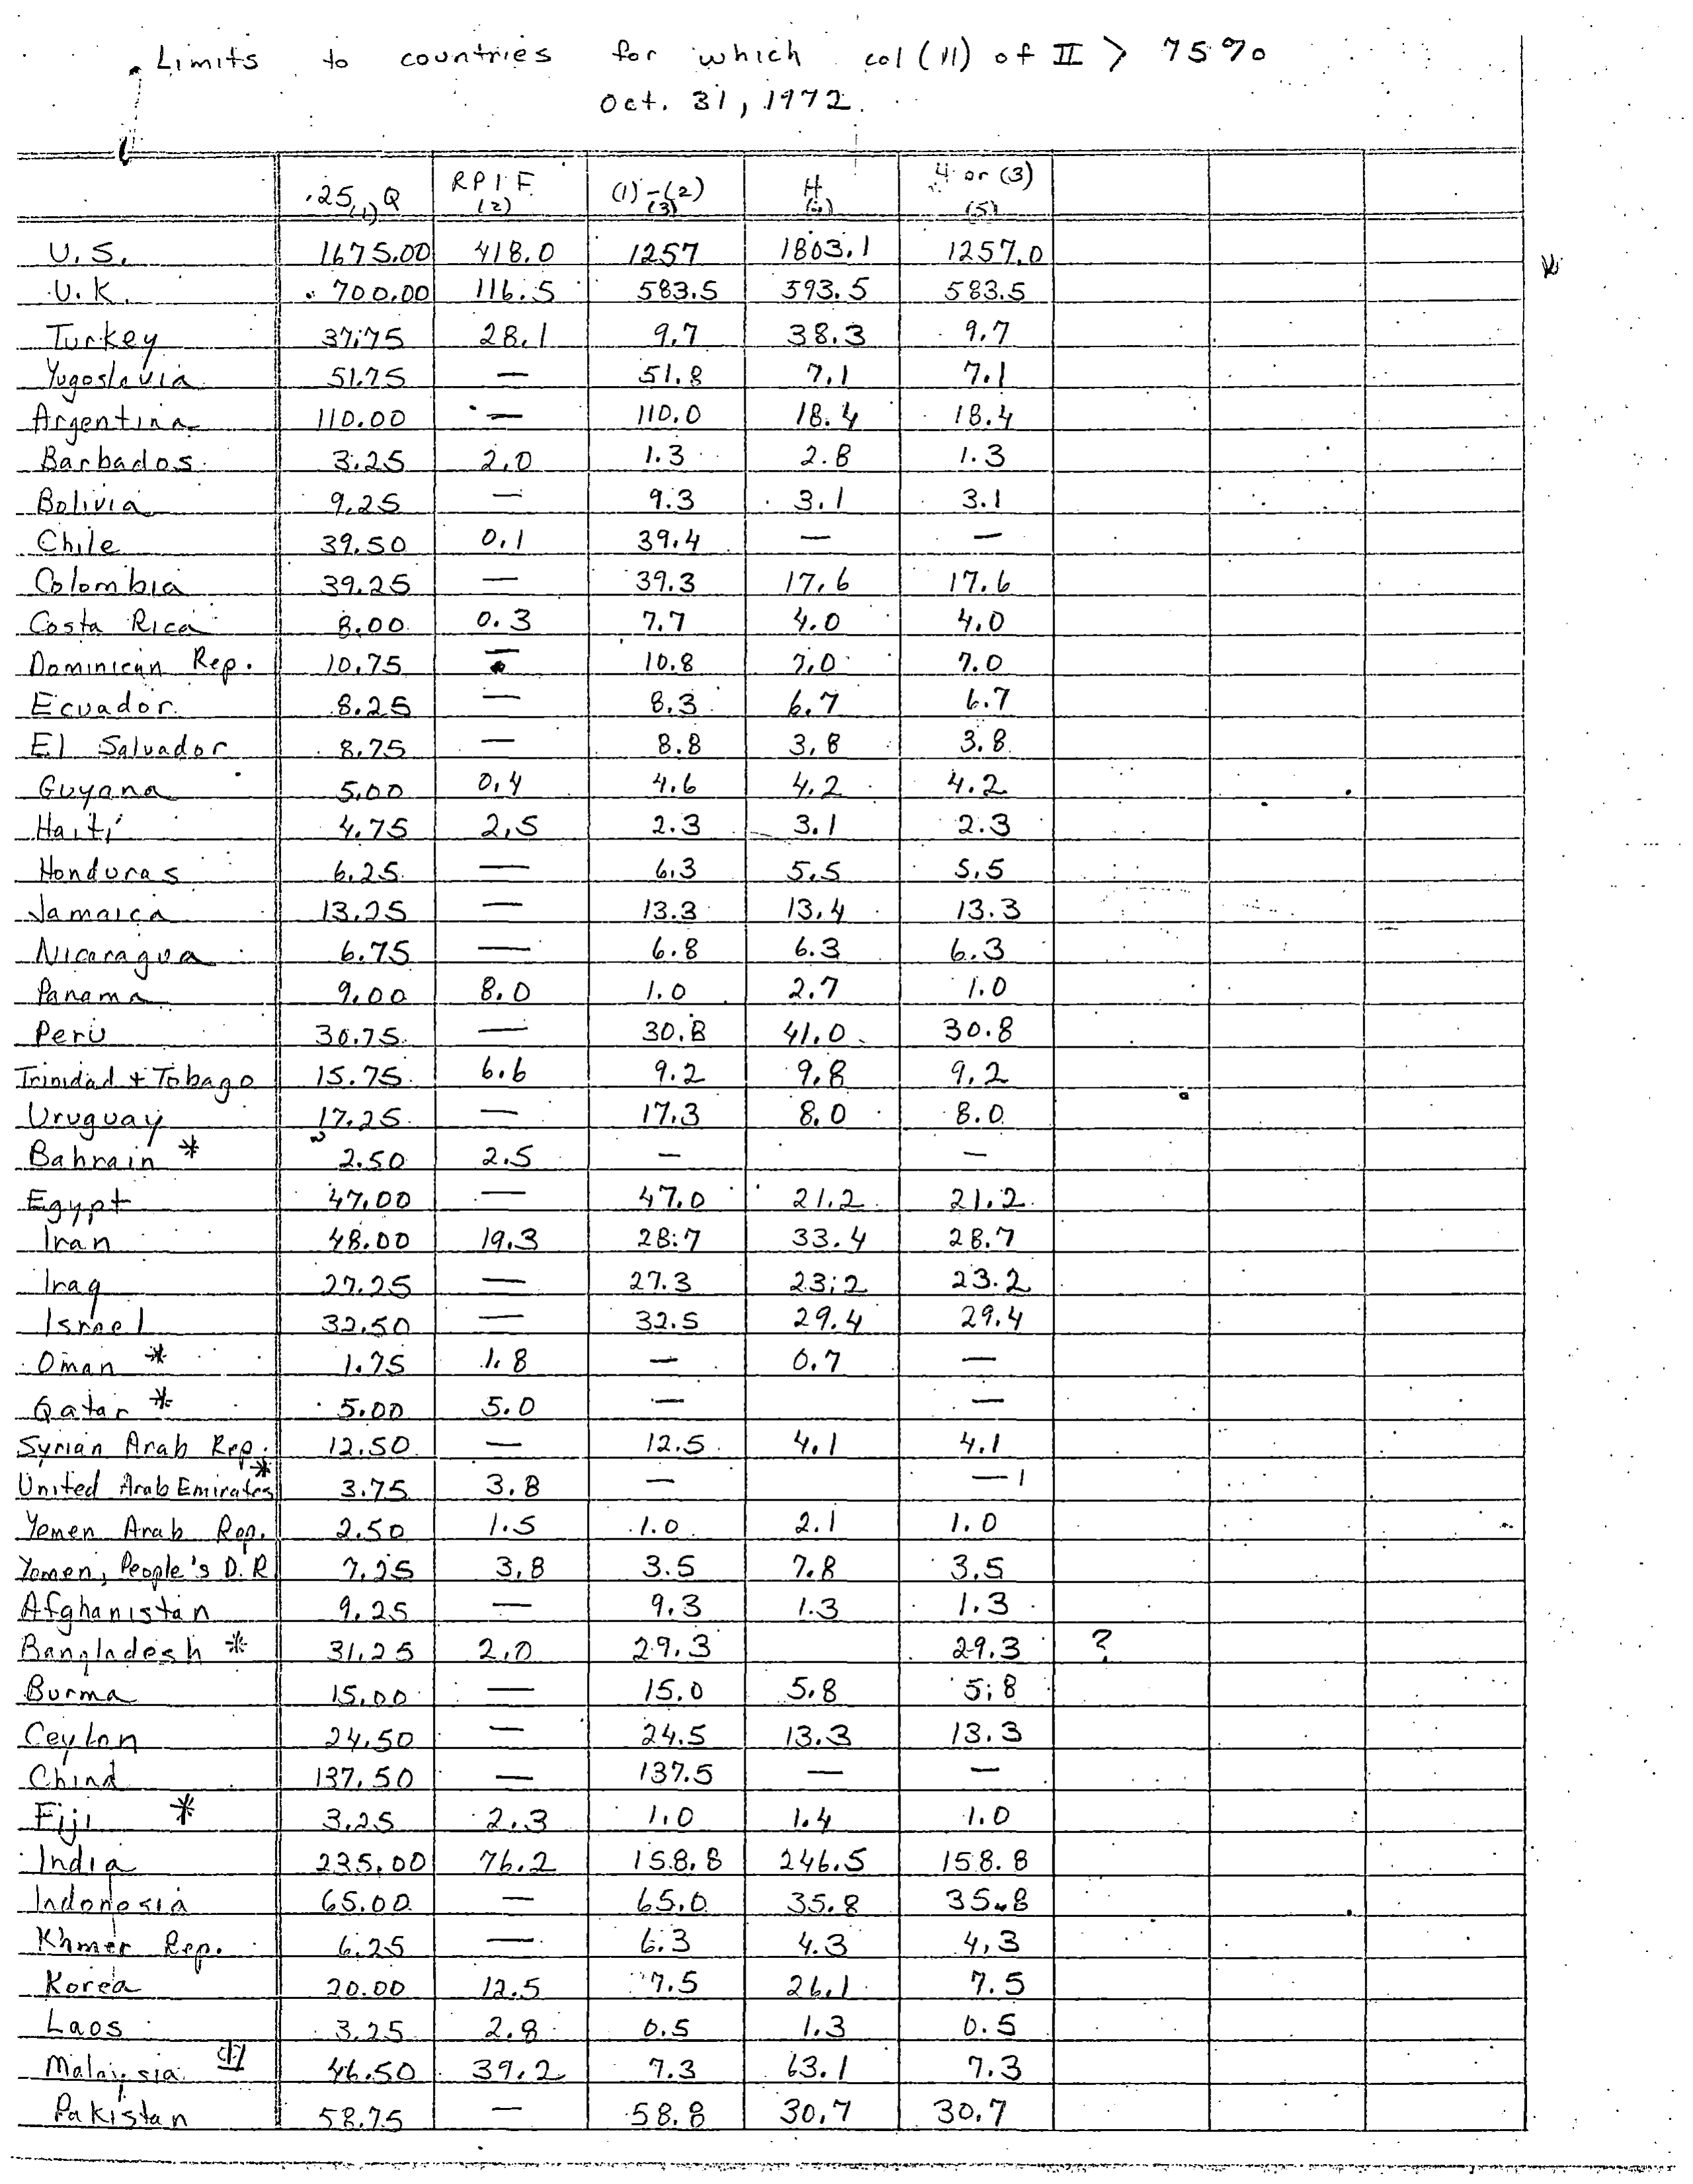 Limits to countries for which col (11) of II > 75%
Oct. 31, 1972
.25 Q (1) RPIF (2) (1)-(2) (3) H (4) 4 or (3) (5)
U.S. 1675.00 418.0 1257 1803.1 1257.0
U.K. 700.00 116.5 583.5 593.5 583.5
Turkey 37.75 28.1 9.7 38.3 9.7
Yugoslavia 51.75 — 51.8 7.1 7.1
Argentina 110.00 — 110.0 18.4 18.4
Barbados 3.25 2.0 1.3 2.8 1.3
Bolivia 9.25 — 9.3 3.1 3.1
Chile 39.50 0.1 39.4 — —
Colombia 39.25 — 39.3 17.6 17.6
Costa Rica 8.00 0.3 7.7 4.0 4.0
Dominican Rep. 10.75 — 10.8 7.0 7.0
Ecuador 8.25 — 8.3 6.7 6.7
El Salvador 8.75 — 8.8 3.8 3.8
Guyana 5.00 0.4 4.6 4.2 4.2
Haiti 4.75 2.5 2.3 3.1 2.3
Honduras 6.25 — 6.3 5.5 5.5
Jamaica 13.25 — 13.3 13.4 13.3
Nicaragua 6.75 — 6.8 6.3 6.3
Panama 9.00 8.0 1.0 2.7 1.0
Peru 30.75 — 30.8 41.0 30.8
Trinidad + Tobago 15.75 6.6 9.2 9.8 9.2
Uruguay 17.25 — 17.3 8.0 8.0
Bahrain * 2.50 2.5 — —
Egypt 47.00 — 47.0 21.2 21.2
Iran 48.00 19.3 28.7 33.4 28.7
Iraq 27.25 — 27.3 23.2 23.2
Israel 32.50 — 32.5 29.4 29.4
Oman * 1.75 1.8 — 0.7 —
Qatar * 5.00 5.0 — —
Syrian Arab Rep. 12.50 — 12.5 4.1 4.1
United Arab Emirates * 3.75 3.8 — —
Yemen Arab Rep. 2.50 1.5 1.0 2.1 1.0
Yemen, People's D.R 7.25 3.8 3.5 7.8 3.5
Afghanistan 9.25 — 9.3 1.3 1.3
Bangladesh * 31.25 2.0 29.3 29.3 ?
Burma 15.00 — 15.0 5.8 5.8
Ceylon 24.50 — 24.5 13.3 13.3
China 137.50 — 137.5 — —
Fiji * 3.25 2.3 1.0 1.4 1.0
India 235.00 76.2 158.8 246.5 158.8
Indonesia 65.00 — 65.0 35.8 35.8
Khmer Rep. 6.25 — 6.3 4.3 4.3
Korea 20.00 12.5 7.5 26.1 7.5
Laos 3.25 2.8 0.5 1.3 0.5
Malaysia 46.50 39.2 7.3 63.1 7.3
Pakistan 58.75 — 58.8 30.7 30.7